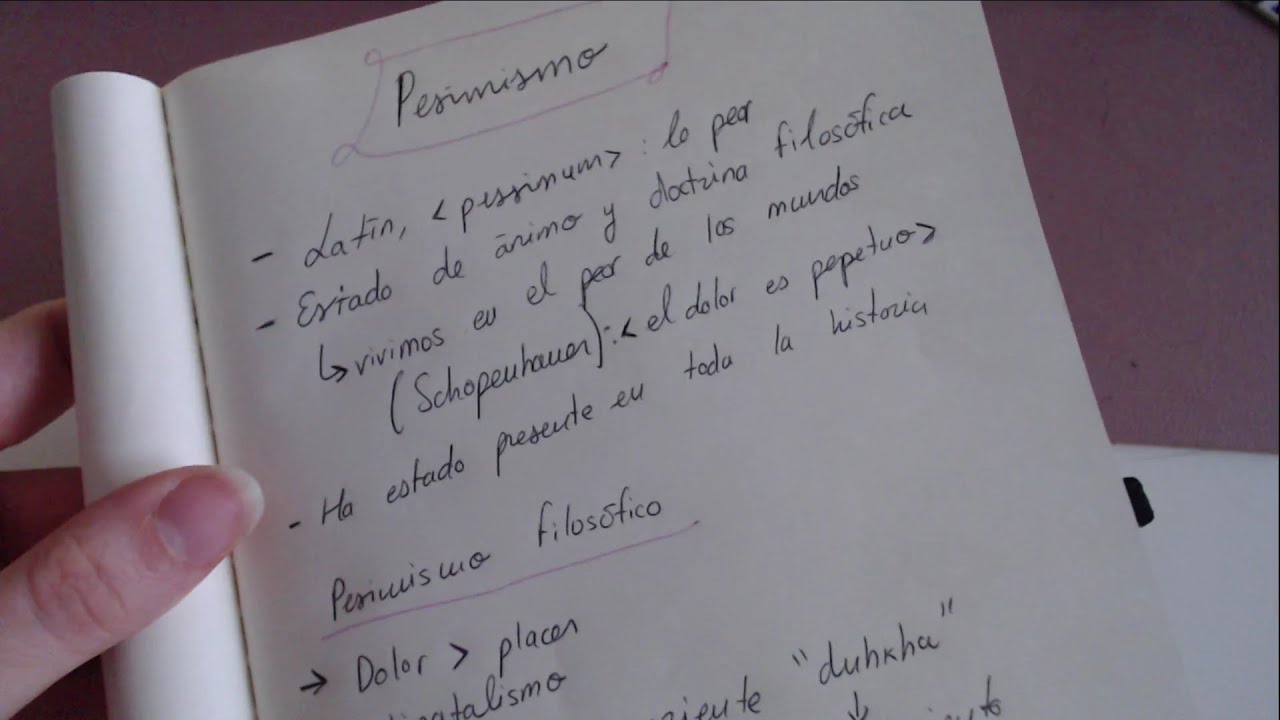 Pesimismo
- Latín, <pessimum>: lo peor
- Estado de ánimo y doctrina filosófica
↳ vivimos en el peor de los mundos
(Schopenhauer): <el dolor es pepetuo>
- Ha estado presente en toda la historia
Pesimismo filosófico
→ Dolor > placer
"duhkha"
↓